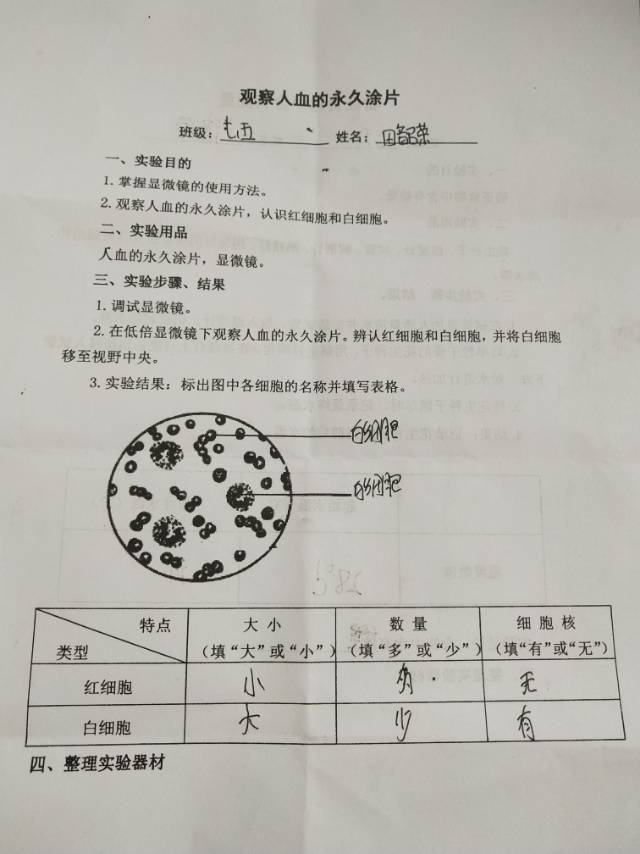 观察人血的永久涂片
班级：七五 姓名：田韶荣
一、实验目的
1. 掌握显微镜的使用方法。
2. 观察人血的永久涂片，认识红细胞和白细胞。
二、实验用品
人血的永久涂片，显微镜。
三、实验步骤、结果
1. 调试显微镜。
2. 在低倍显微镜下观察人血的永久涂片。辨认红细胞和白细胞，并将白细胞
移至视野中央。
3. 实验结果：标出图中各细胞的名称并填写表格。
白细胞
白细胞
特点 大小 数量 细胞核
类型 （填“大”或“小”） （填“多”或“少”） （填“有”或“无”）
红细胞 小 多 无
白细胞 大 少 有
四、整理实验器材